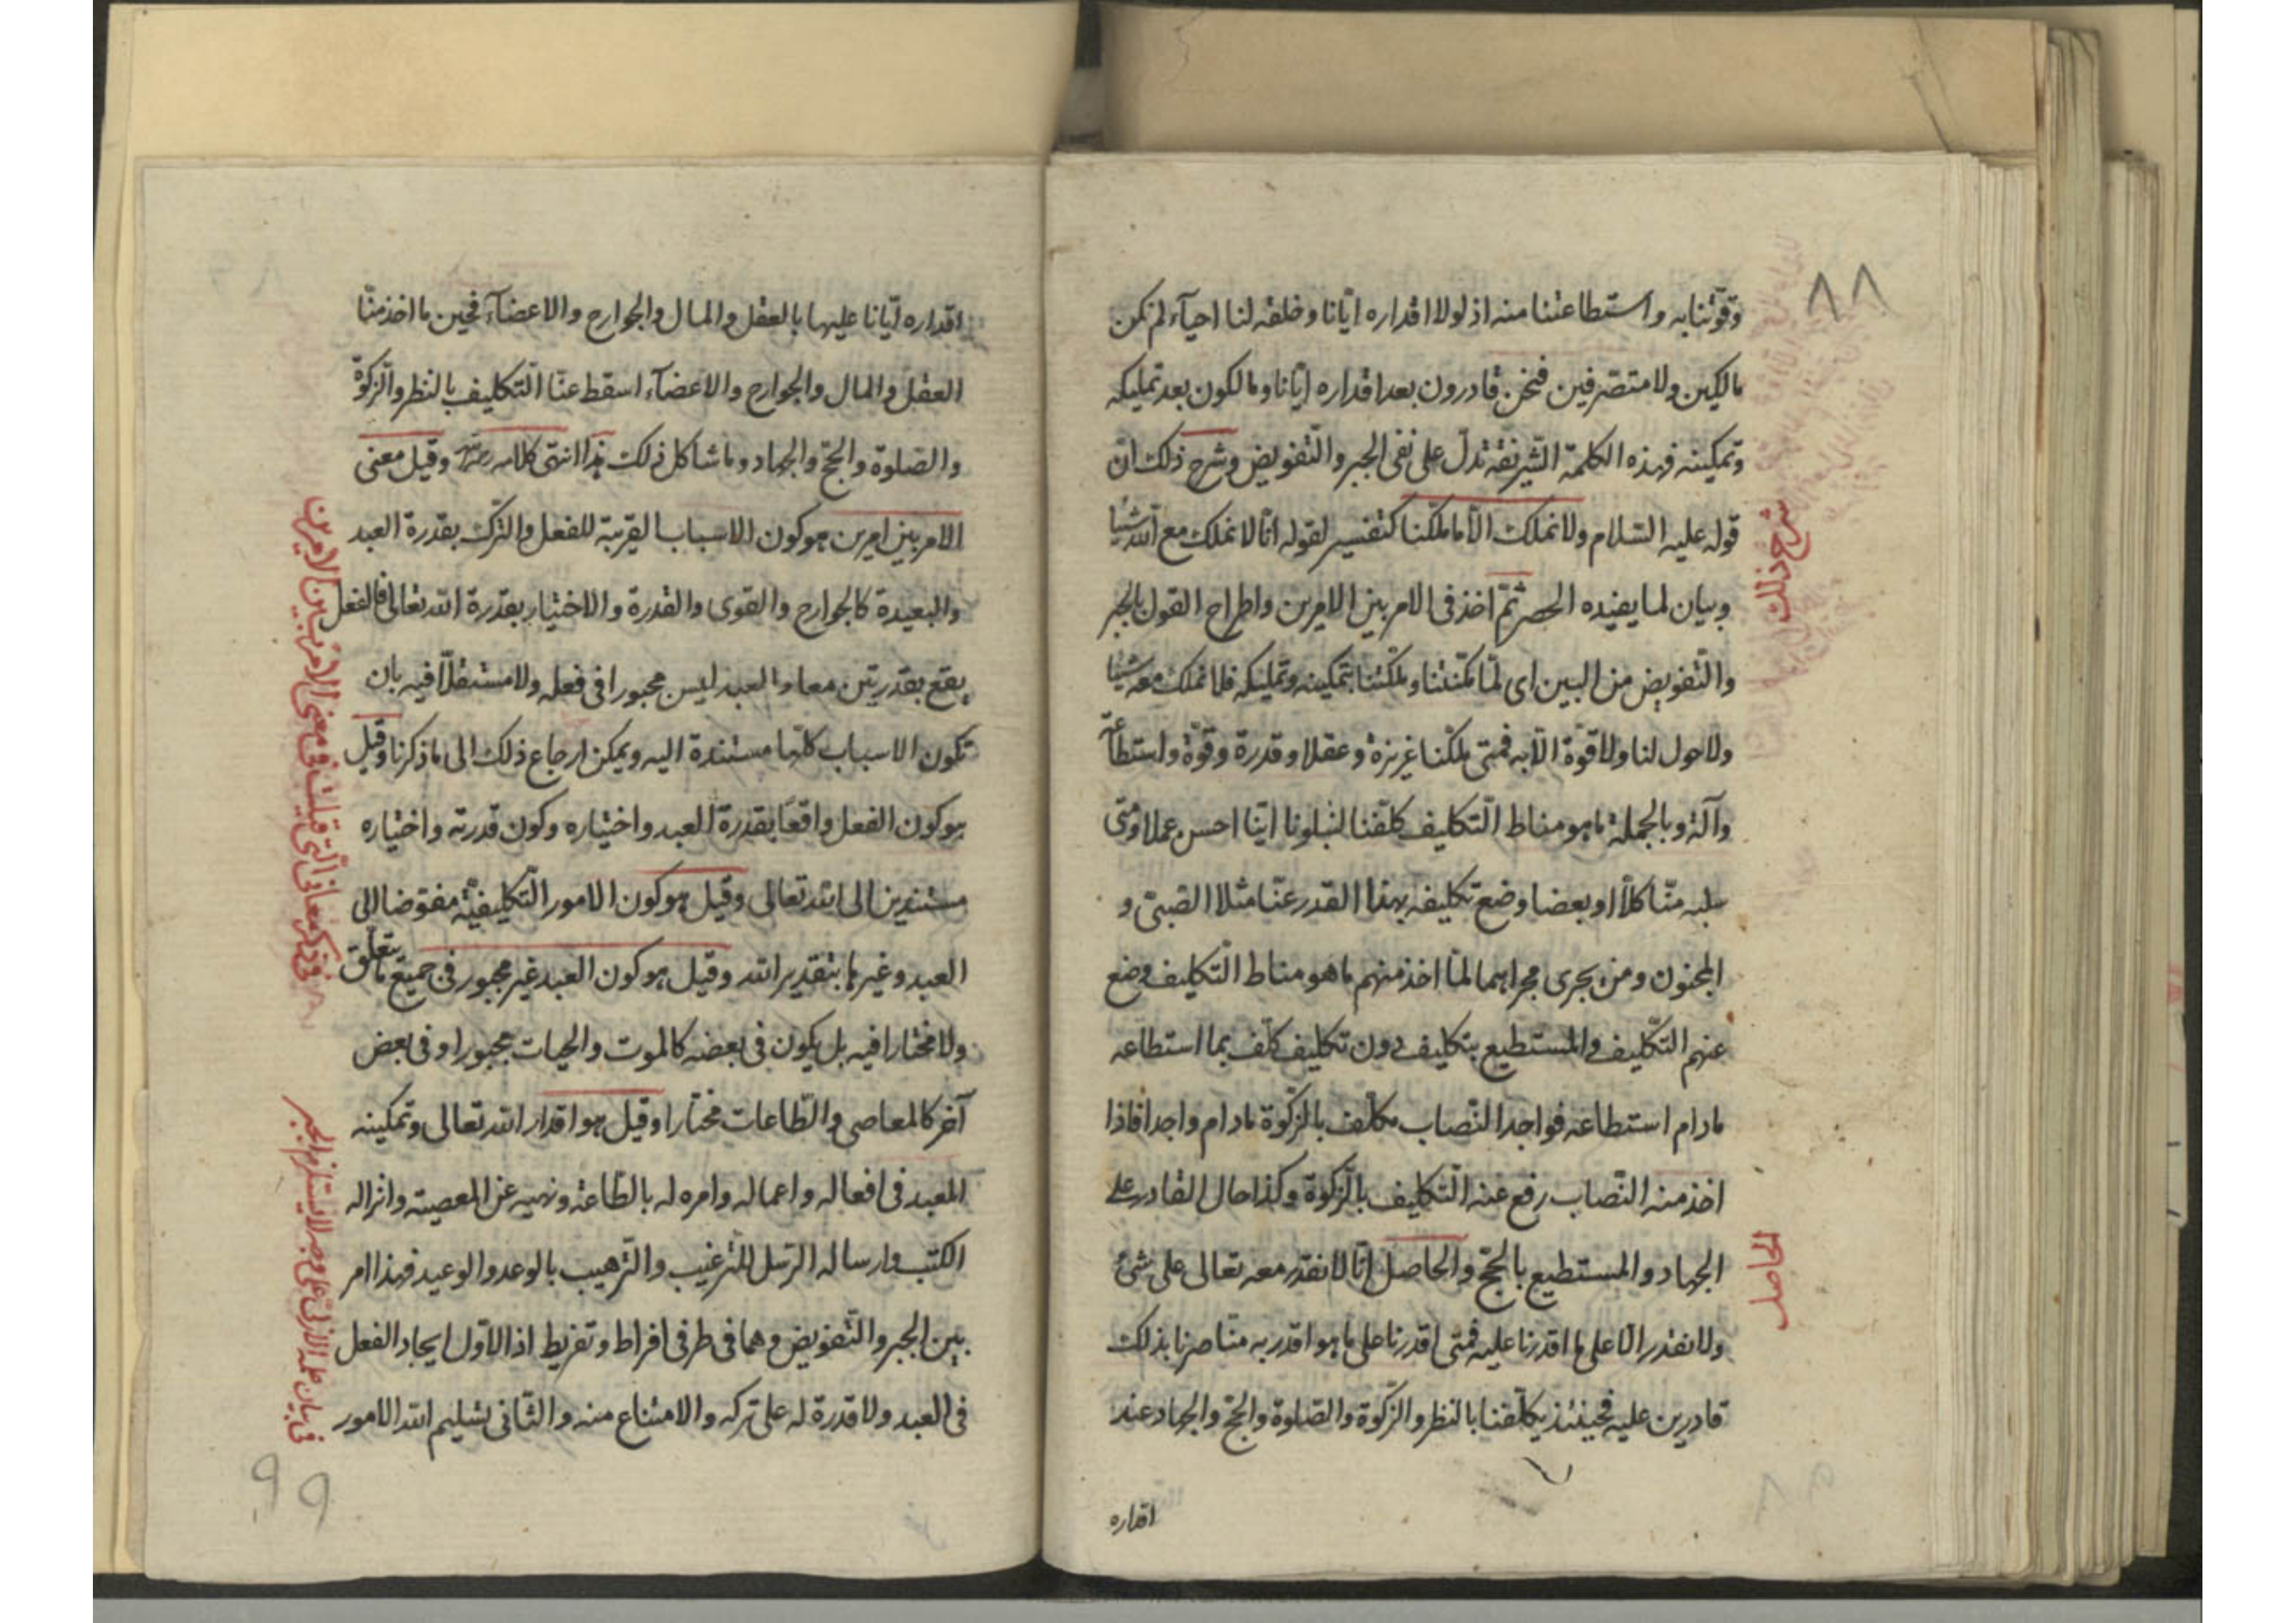 ٨٨
وقوّتنا به واستطاعتنا منه اذ لولا اقداره ايّانا وخلقه لنا احيآء لم نكن
مالكين ولا متصّرفين فنحن قادرون بعد اقداره ايّانا ومالكون بعد تمليكه
وتمكينه فهذه الكلمة الشّريفة تدلّ على نفى الجبر والتّفويض وشرح ذلك انّ
قوله عليه السّلام ولا نملك الّا ما ملّكنا كتفسير لقوله انّا لا نملك مع اللّه شيئا
وبيان لما يفيده الحصر ثمّ اخذ فى الامر بين الامرين واطراح القول بالجبر
والتّفويض من البين اى لمّا مكّننا وملّكنا بتمكينه وتمليكه فلا نملك معه شيئا
ولا حول لنا ولا قوّة الّا به فمتى ملّكنا غريزة وعقلا وقدرة وقوّة واستطاعة
وآلة وبالجملة ما هو مناط التّكليف كلّفنا لنبلونا ايّنا احسن عملا ومتى
سلبه منّا كلّا او بعضا وضع تكليفه بهذا القدر عنّا مثلا الصّبىّ و
المجنون ومن يجرى مجراهما لمّا اخذ منهم ما هو مناط التّكليف وضع
عنهم التّكليف والمستطيع بتكليف دون تكليف كلّف بما استطاعه
مادام استطاعه فواجد النّصاب مكلّف بالزّكوة مادام واجدا فاذا
اخذ منه النّصاب رفع عنه التّكليف بالزّكوة وكذا حال القادر على
الجهاد والمستطيع بالحجّ والحاصل انّا لا نقدر معه تعالى على شئ
ولا نقدر الّا على ما اقدرنا عليه فمتى اقدرنا على ما هو اقدر به منّا صرنا بذلك
قادرين عليه فحينئذ يكلّفنا بالنظر والزّكوة والصّلوة والحجّ والجهاد عند
اقداره
شرح ذلك
الحاصل
اقداره ايّانا عليها بالعقل والمال والجوارح والاعضآء فحين ما اخذ منّا
العقل والمال والجوارح والاعضآء اسقط عنّا التّكليف بالنظر والزّكوة
والصّلوة والحجّ والجهاد وما شاكل ذلك هذا انتهى كلامه وقيل معنى
الامر بين امرين هو كون الاسباب القريبة للفعل والتّرك بقدرة العبد
والبعيدة كالجوارح والقوى والقدرة والاختيار بقدرة اللّه تعالى فالفعل
يقع بقدرتين معا والعبد ليس مجبورا فى فعله ولا مستقلّا فيه بان
تكون الاسباب كلّها مستندة اليه ويمكن ارجاع ذلك الى ما ذكرنا وقيل
هو كون الفعل واقعًا بقدرة العبد واختياره وكون قدرته واختياره
مستندين الى اللّه تعالى وقيل هو كون الامور التّكليفيّة مفوّضا الى
العبد وغيرها بتقدير اللّه وقيل هو كون العبد غير مجبور فى جميع ما يتعلّق
ولا مختارا فيه بل يكون فى بعضه كالموت والحيات مجبورا وفى بعض
آخر كالمعاصى والطّاعات مختارا وقيل هو اقدار اللّه تعالى وتمكينه
العبد فى افعاله واعماله وامره له بالطّاعة ونهيه عن المعصية وانزاله
الكتب وارساله الرّسل للتّرغيب والتّرهيب بالوعد والوعيد فهذا امر
بين الجبر والتّفويض وهما فى طرفى افراط وتفريط اذ الاوّل ايجاد الفعل
فى العبد ولا قدرة له على تركه والامتناع منه والثّانى تسليم اللّه الامور
فى ذكر معانى الّتى قيلت فى معنى الامر بين الامرين
فى بيان علمه الازلىّ على وجه لا يستلزم الجبر